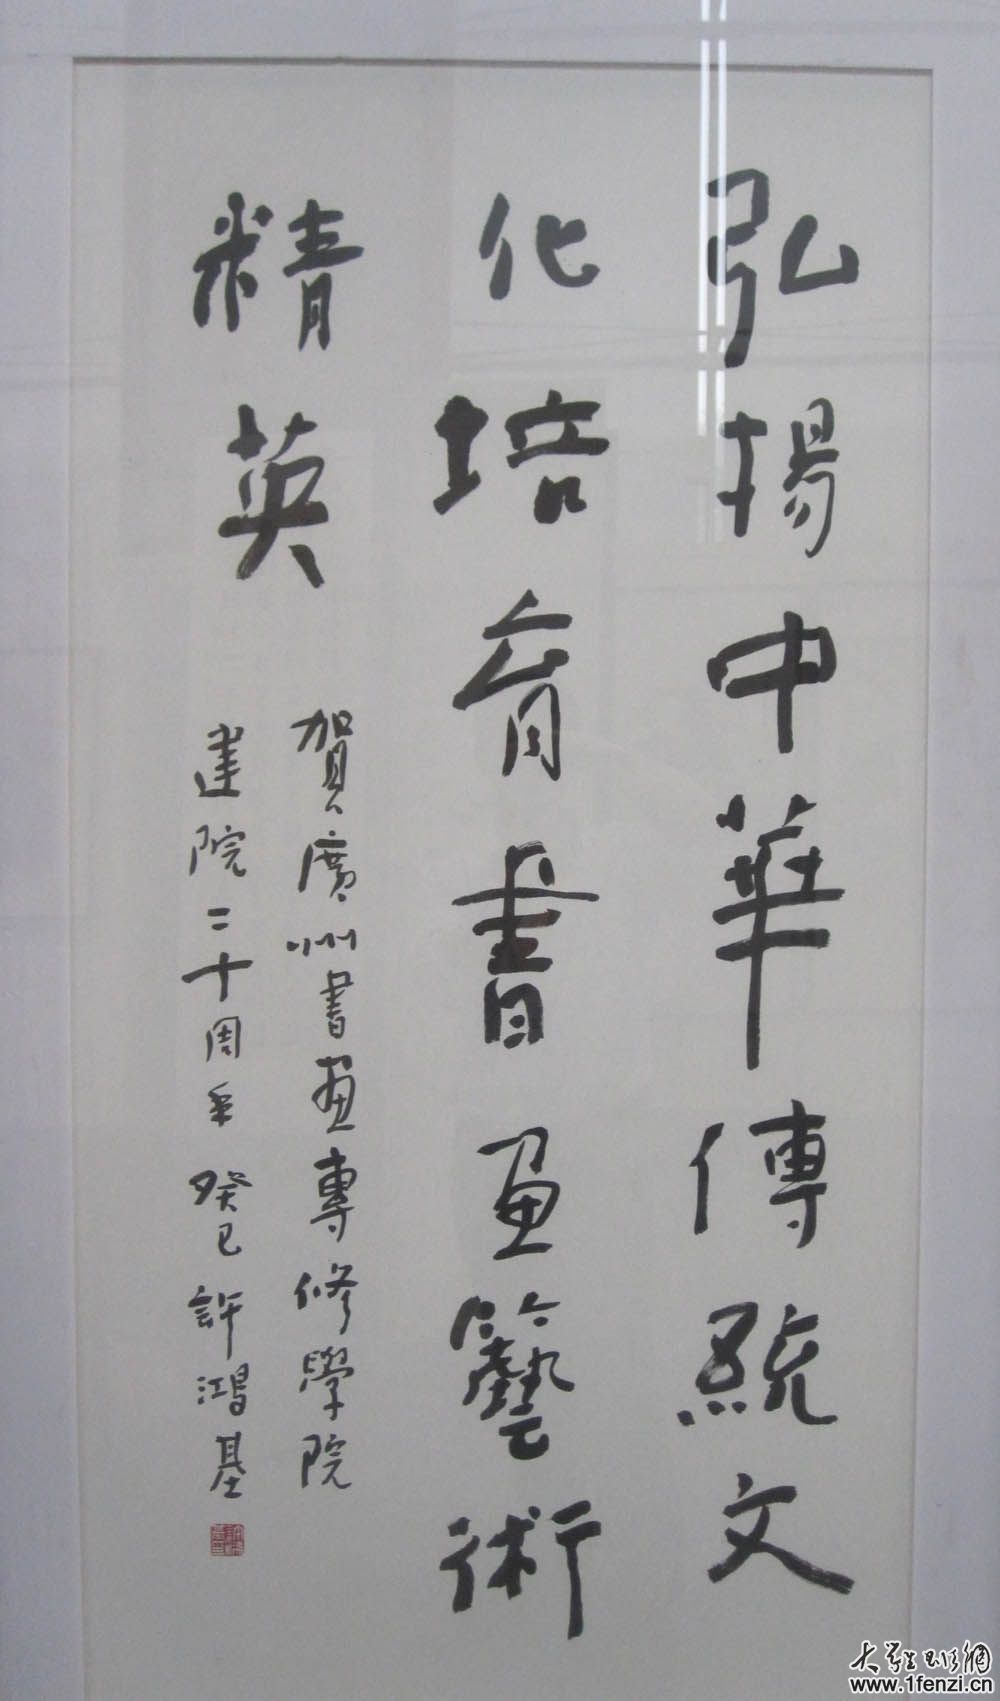 弘揚中華傳統文
化培育書画藝術
精英
賀廣州書画專修學院
建院二十周年癸巳許鴻基
www.1fenzi.cn